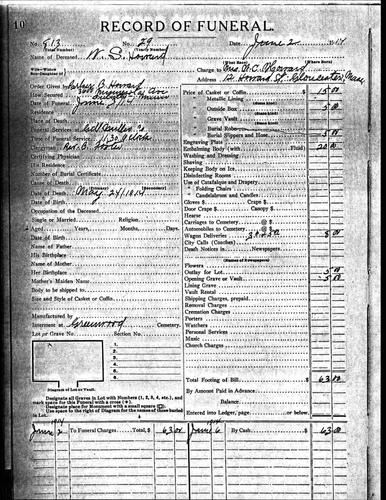 10
RECORD OF FUNERAL.
No. 513 No. 29 Date, June 2 1914
(Total Number) (Yearly Number)
Name of Deceased W. S. Howard
Charge to
Address
Order Given by Howard
How Secured
Date of Funeral June
Residence
Place of Death
Funeral Services at
Time of Funeral Service, 11:30 o'clock
Clergyman Rev.
Certifying Physician
His Residence
Number of Burial Certificate
Cause of Death
Date of Death May 24/1914
Occupation of the Deceased
Single or Married Religion
Aged Years, Months, Days.
Date of Birth
Name of Father
His Birthplace
Name of Mother
Her Birthplace
Mother's Maiden Name
Body to be shipped to
Size and Style of Casket or Coffin
Manufactured by
Interment at Greenwood Cemetery.
Lot or Grave No. Section No.
1.
2.
3.
4.
Diagram of Lot or Vault.
Designate all Graves in Lot with Numbers (1, 2, 3, 4, etc.), and
mark space for this Funeral with a cross
Designate place for Monument with a small square
Use space to right of Diagram for the names of those buried
in Lot.
Price of Casket or Coffin 15.00
Metallic Lining
Outside Box 5.00
Grave Vault
Burial Robe
Burial Slippers and Hose 5.00
Engraving Plate
Embalming Body (with Fluid) 20.00
Washing and Dressing
Shaving
Keeping Body on Ice
Disinfecting Rooms
Use of Catafalque and Drapery
" Folding Chairs
" Candelabrum and Candles
Gloves $ Crape $
Door Crape $ Canopy $
Hearse
Carriages to Cemetery @ $
Automobiles to Cemetery @ $
Wagon Deliveries 8.00
City Calls (Coaches)
Death Notices in Newspapers.
(Names of Newspapers)
Flowers
Outlay for Lot 5.00
Opening Grave or Vault 5.00
Lining Grave
Vault Rental
Shipping Charges, prepaid
Removal Charges
Cremation Charges
Porters
Watchers
Personal Services
Music
Church Charges
Total Footing of Bill $ 63.00
By Amount Paid in Advance
Balance
Entered into Ledger, page or below.
1914
June 2 To Funeral Charges Total, $ 63.00 June 6 By Cash $ 63.00